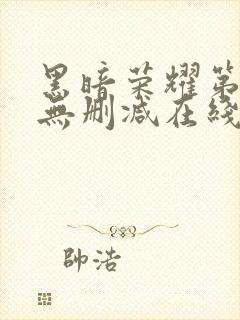 黑暗荣耀第
無删减在綫
帥浩